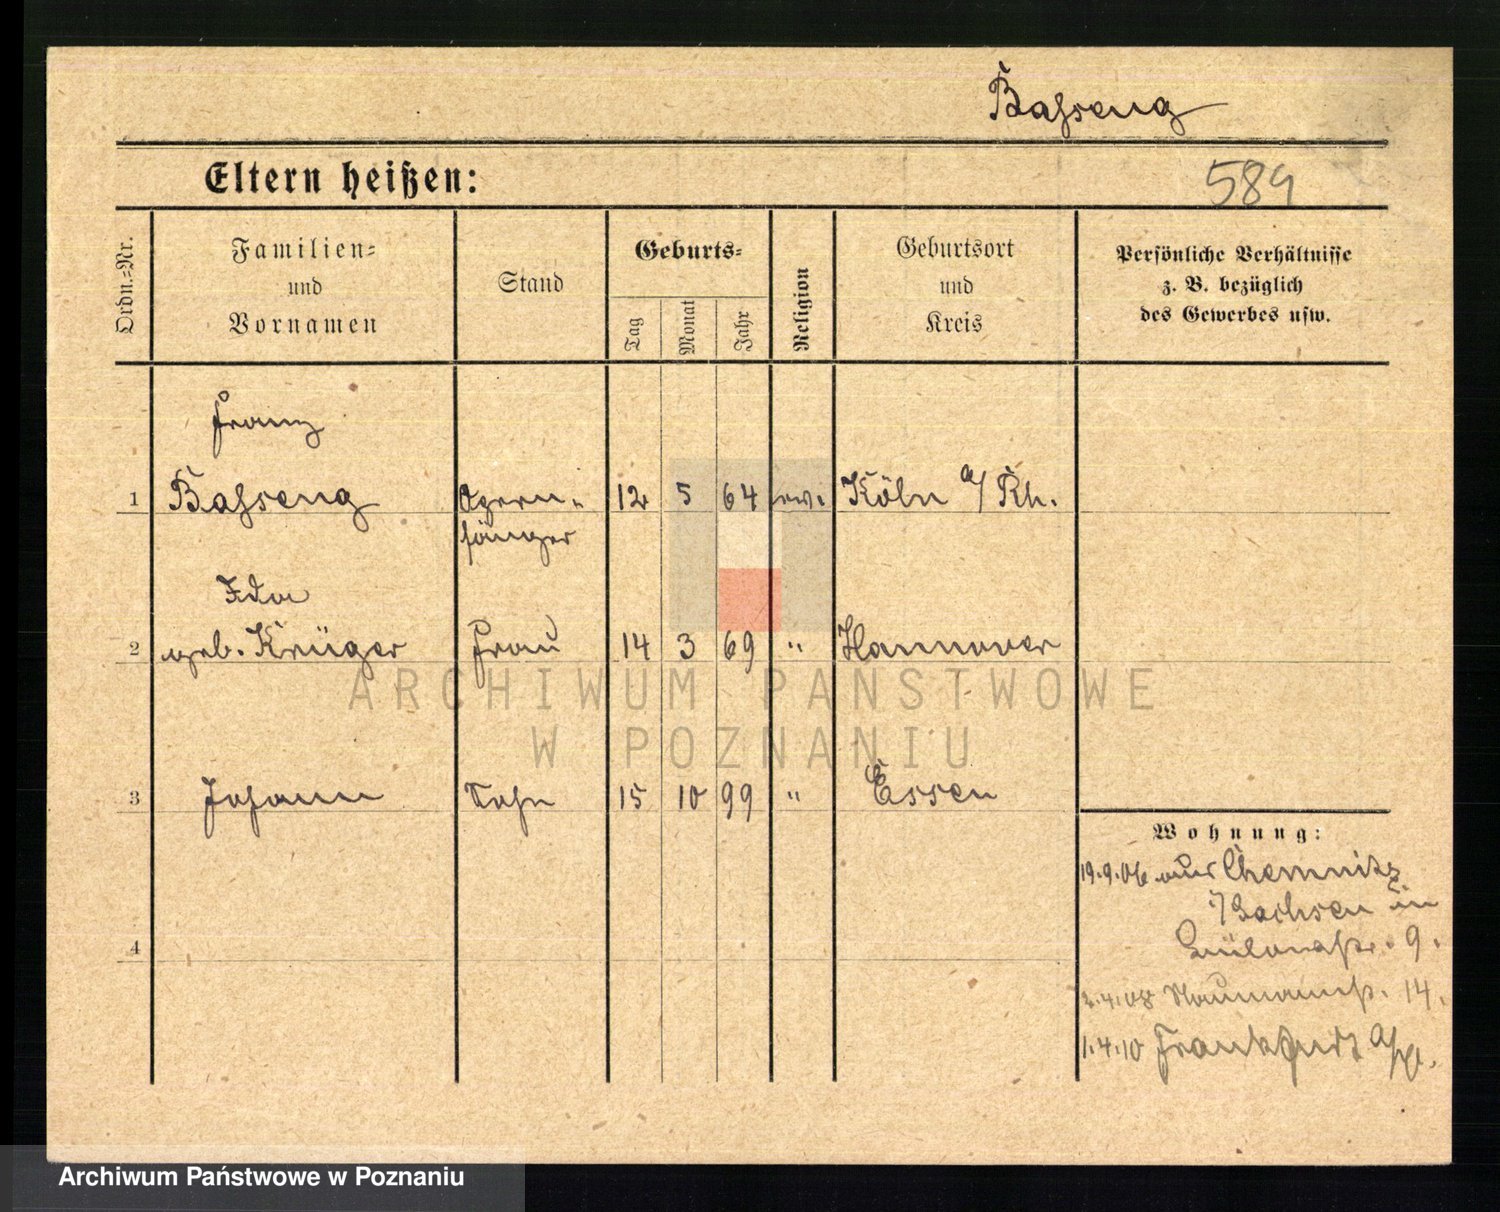 Bahseng
Eltern heißen:
589
Ordn.=Nr.
Familien=
und
Vornamen
Stand
Geburts=
Tag
Monat
Jahr
Religion
Geburtsort
und
Kreis
Persönliche Verhältnisse
z. B. bezüglich
des Gewerbes usw.
Franz
1 Bahseng Opern- 12 5 64 ev. Köln a/Rh.
sänger
Ida
2 geb. Krüger Frau 14 3 69 " Hannover
3 Johann Sohn 15 10 99 " Essen
4
Wohnung:
19.9.06 aus Chemnitz
i/Sachsen in
9.
2.4.08 Naumannst. 14.
1.4.10 Frankfurt a/M.
ARCHIWUM PAŃSTWOWE
W POZNANIU
Archiwum Państwowe w Poznaniu